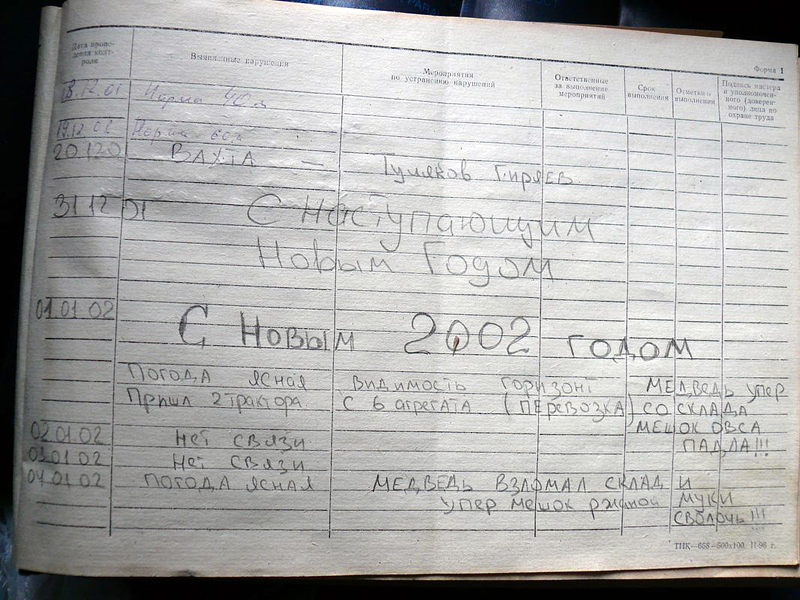 Форма 1
Дата прове-
дения конт-
роля
Выявленные нарушения
Мероприятия
по устранению нарушений
Ответственные
за выполнение
мероприятий
Срок
выполнения
Отметки о
выполнении
Подпись мастера
и уполномочен-
ного (доверен-
ного) лица по
охране труда
18.12.01 Норма
19.12.01 Норма
20.120 ВАХТА — Гуляков Гиряев
31 12 01 С Наступающим
Новым Годом
01.01 02 С Новым 2002 годом
Погода ясная видимость горизонт МЕДВЕДЬ упер
Пришл 2 трактора с 6 агрегата (ПЕРЕВОЗКА) со склада
МЕШОК ОВСА
02.01.02 Нет связи ПАДЛА!!!
03.01.02 Нет связи
04.01 02 Погода ясная МЕДВЕДЬ ВЗЛОМАЛ СКЛАД И
упер мешок ржаной муки
СВОЛОЧЬ!!!